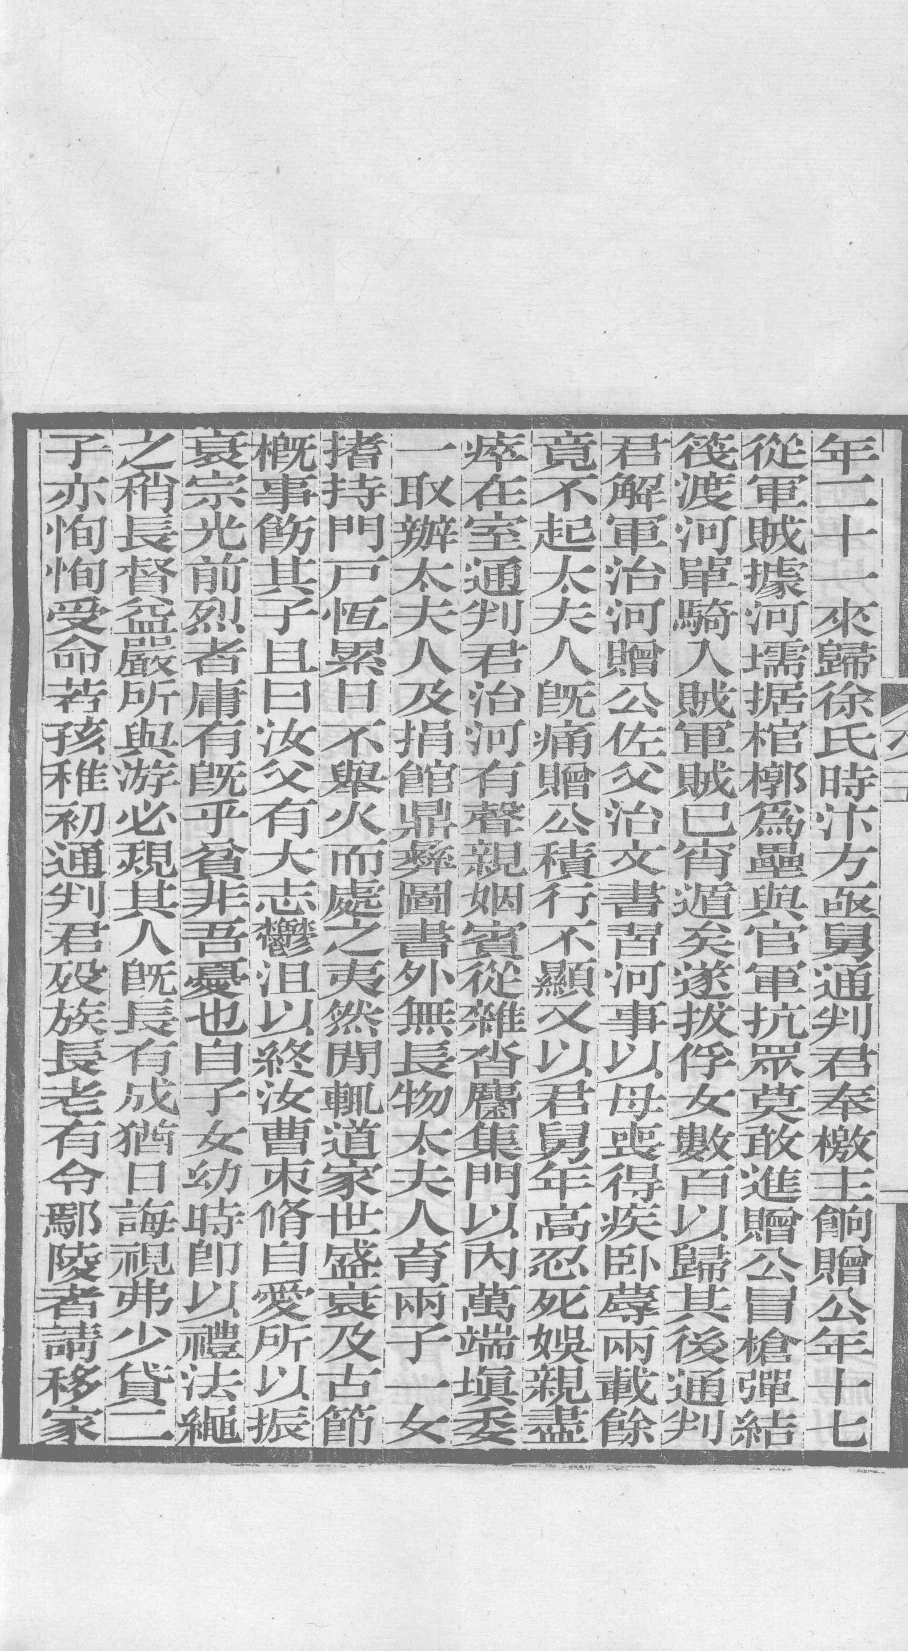 年二十一來歸徐氏時汴方亟舅通判君奉檄主餉贈公年十七
從軍賊據河壖据棺槨爲壘與官軍抗眾莫敢進贈公冒槍彈結
筏渡河單騎入賊軍賊已宵遁矣遂拔俘女數百以歸其後通判
君解軍治河贈公佐父治文書習河事以母喪得疾卧蓐兩載餘
竟不起太夫人旣痛贈公積行不顯又以君舅年高忍死娛親盡
瘁在室通判君治河有聲親姻賓從雜沓麕集門以內萬端塡委
一取辦太夫人及捐館鼎彝圖書外無長物太夫人育兩子一女
搘持門戸恆累日不舉火而處之夷然閒輒道家世盛衰及古節
槪事飭其子且曰汝父有大志鬱沮以終汝曹束脩自愛所以振
衰宗光前烈者庸有旣乎貧非吾憂也自子女幼時卽以禮法繩
之稍長督益嚴所與游必覘其人旣長有成猶日誨視弗少貸二
子亦恂恂受命若孩稚初通判君歿族長老有令鄢陵者請移家